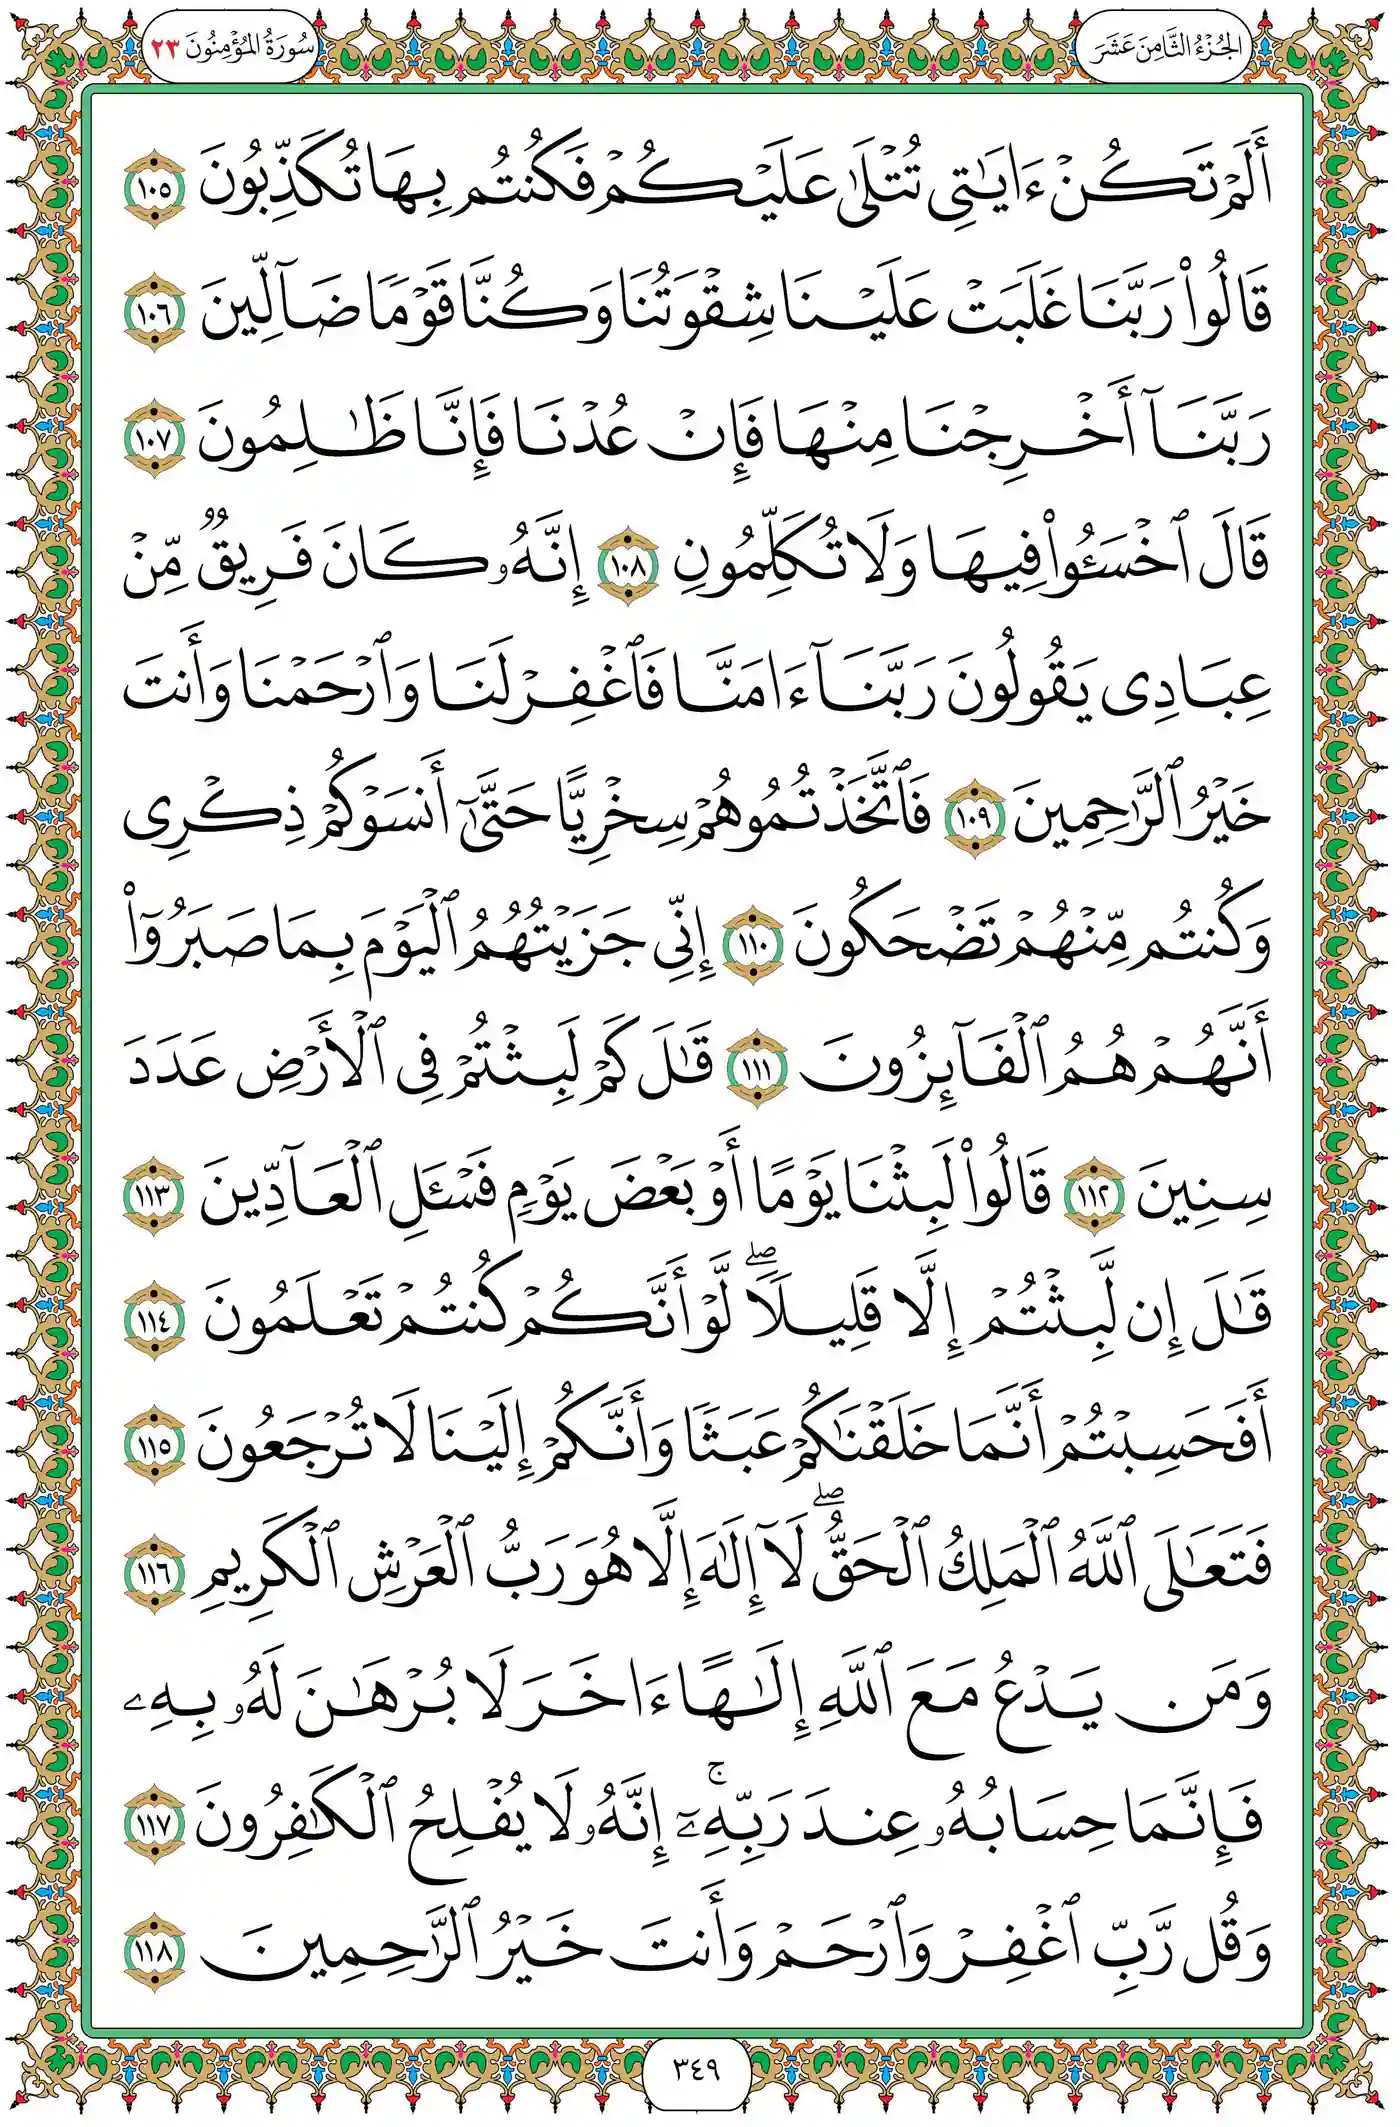 الجُزْءُ الثَّامِنَ عَشَرَ
سُورَةُ المُؤۡمِنُونَ ٢٣
أَلَمۡ تَكُنۡ ءَايَٰتِي تُتۡلَىٰ عَلَيۡكُمۡ فَكُنتُم بِهَا تُكَذِّبُونَ ١٠٥
قَالُواْ رَبَّنَا غَلَبَتۡ عَلَيۡنَا شِقۡوَتُنَا وَكُنَّا قَوۡمٗا ضَآلِّينَ ١٠٦
رَبَّنَآ أَخۡرِجۡنَا مِنۡهَا فَإِنۡ عُدۡنَا فَإِنَّا ظَٰلِمُونَ ١٠٧
قَالَ ٱخۡسَـُٔواْ فِيهَا وَلَا تُكَلِّمُونِ ١٠٨ إِنَّهُۥ كَانَ فَرِيقٞ مِّنۡ
عِبَادِي يَقُولُونَ رَبَّنَآ ءَامَنَّا فَٱغۡفِرۡ لَنَا وَٱرۡحَمۡنَا وَأَنتَ
خَيۡرُ ٱلرَّٰحِمِينَ ١٠٩ فَٱتَّخَذۡتُمُوهُمۡ سِخۡرِيًّا حَتَّىٰٓ أَنسَوۡكُمۡ ذِكۡرِي
وَكُنتُم مِّنۡهُمۡ تَضۡحَكُونَ ١١٠ إِنِّي جَزَيۡتُهُمُ ٱلۡيَوۡمَ بِمَا صَبَرُوٓاْ
أَنَّهُمۡ هُمُ ٱلۡفَآئِزُونَ ١١١ قَٰلَ كَمۡ لَبِثۡتُمۡ فِي ٱلۡأَرۡضِ عَدَدَ
سِنِينَ ١١٢ قَالُواْ لَبِثۡنَا يَوۡمًا أَوۡ بَعۡضَ يَوۡمٖ فَسۡـَٔلِ ٱلۡعَآدِّينَ ١١٣
قَٰلَ إِن لَّبِثۡتُمۡ إِلَّا قَلِيلٗاۖ لَّوۡ أَنَّكُمۡ كُنتُمۡ تَعۡلَمُونَ ١١٤
أَفَحَسِبۡتُمۡ أَنَّمَا خَلَقۡنَٰكُمۡ عَبَثٗا وَأَنَّكُمۡ إِلَيۡنَا لَا تُرۡجَعُونَ ١١٥
فَتَعَٰلَى ٱللَّهُ ٱلۡمَلِكُ ٱلۡحَقُّۖ لَآ إِلَٰهَ إِلَّا هُوَ رَبُّ ٱلۡعَرۡشِ ٱلۡكَرِيمِ ١١٦
وَمَن يَدۡعُ مَعَ ٱللَّهِ إِلَٰهًا ءَاخَرَ لَا بُرۡهَٰنَ لَهُۥ بِهِۦ
فَإِنَّمَا حِسَابُهُۥ عِندَ رَبِّهِۦٓۚ إِنَّهُۥ لَا يُفۡلِحُ ٱلۡكَٰفِرُونَ ١١٧
وَقُل رَّبِّ ٱغۡفِرۡ وَٱرۡحَمۡ وَأَنتَ خَيۡرُ ٱلرَّٰحِمِينَ ١١٨
٣٤٩